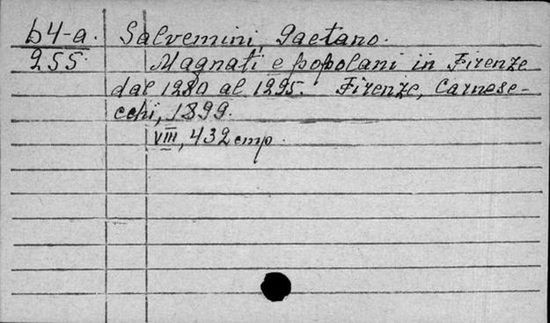 b4-a. Salvemini, Gaetano.
255. Magnati e popolani in Firenze
dal 1280 al 1295. Firenze, Carnese-
cchi, 1899.
VIII, 432 стр.